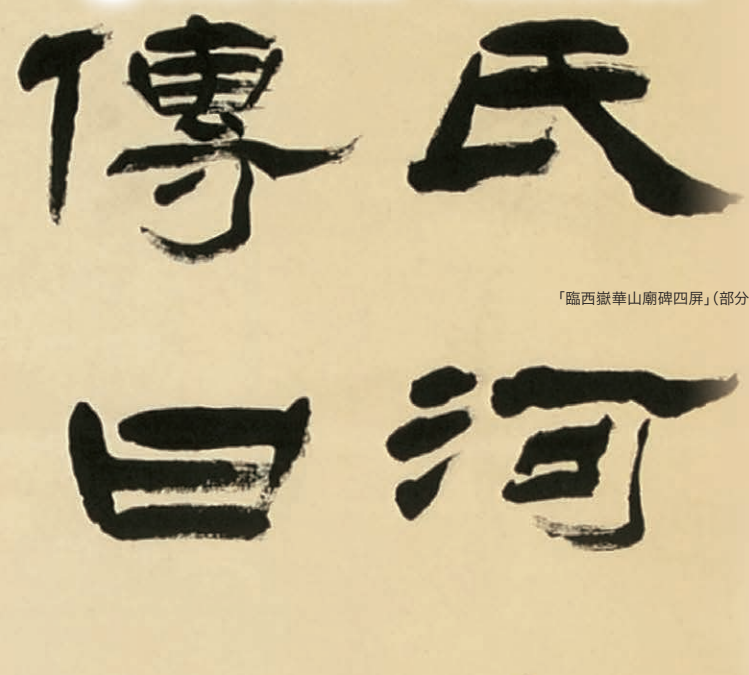 氏河
傳曰
「臨西嶽華山廟碑四屏」(部分